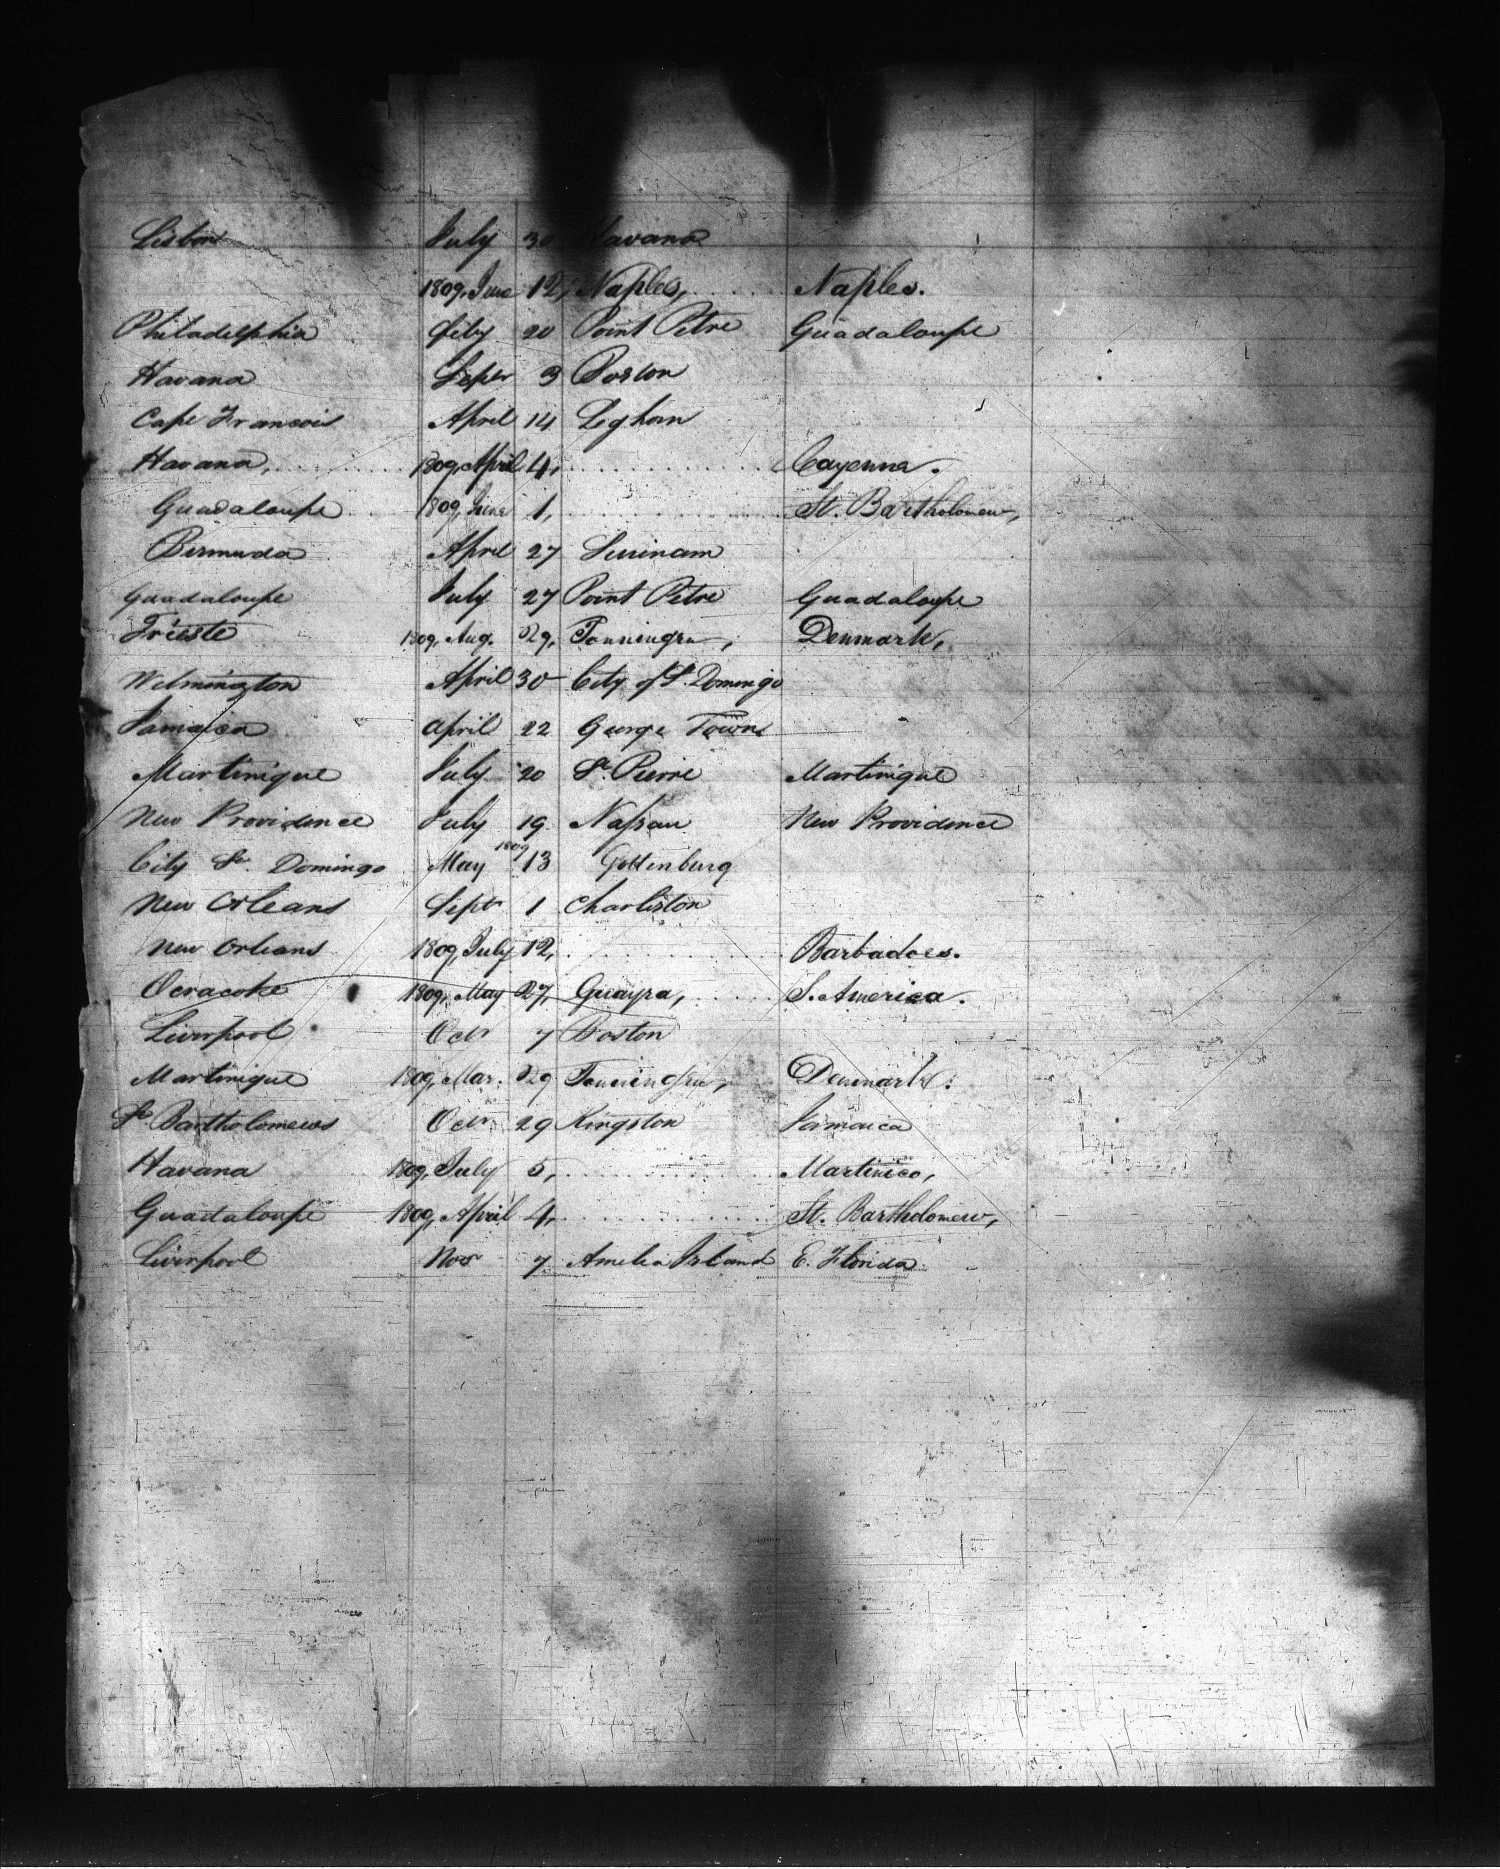 Lisbon July 30 Havana
1809, June 12, Naples, ..... Naples.
Philadelphia Feby 20 Point Petre Guadaloupe
Havana Sepr 3 Boston
Cape Francois April 14 Leghorn
Havana, ......... 1809, April 4, ............ Cayenne.
Guadaloupe .. 1809, June 1, ............ St. Bartholomew,
Bermuda April 27 Surinam
Guadaloupe July 27 Point Petre Guadaloupe
Trieste 1809, Aug. 29, Tonningen, Denmark,
Wilmington April 30 City of St. Domingo
Jamaica April 22 George Town
Martinique July 20 St. Pierre Martinique
New Providence July 19 Nassau New Providence
City St. Domingo May 1809 13 Gottenburg
New Orleans Sepr 1 Charleston
New Orleans 1809, July 12, ............ Barbadoes.
Ocracoke 1809, May 27, Guayra, ..... S. America.
Liverpool Octr 7 Boston
Martinique 1809, Mar. 29 Tonningen, Denmark.
St Bartholomews Octr 29 Kingston Jamaica
Havana 1809, July 5, ............ Martinico,
Guadaloupe 1809, April 4, ............ St. Bartholomew,
Liverpool Nov 7 Amelia Island E. Florida